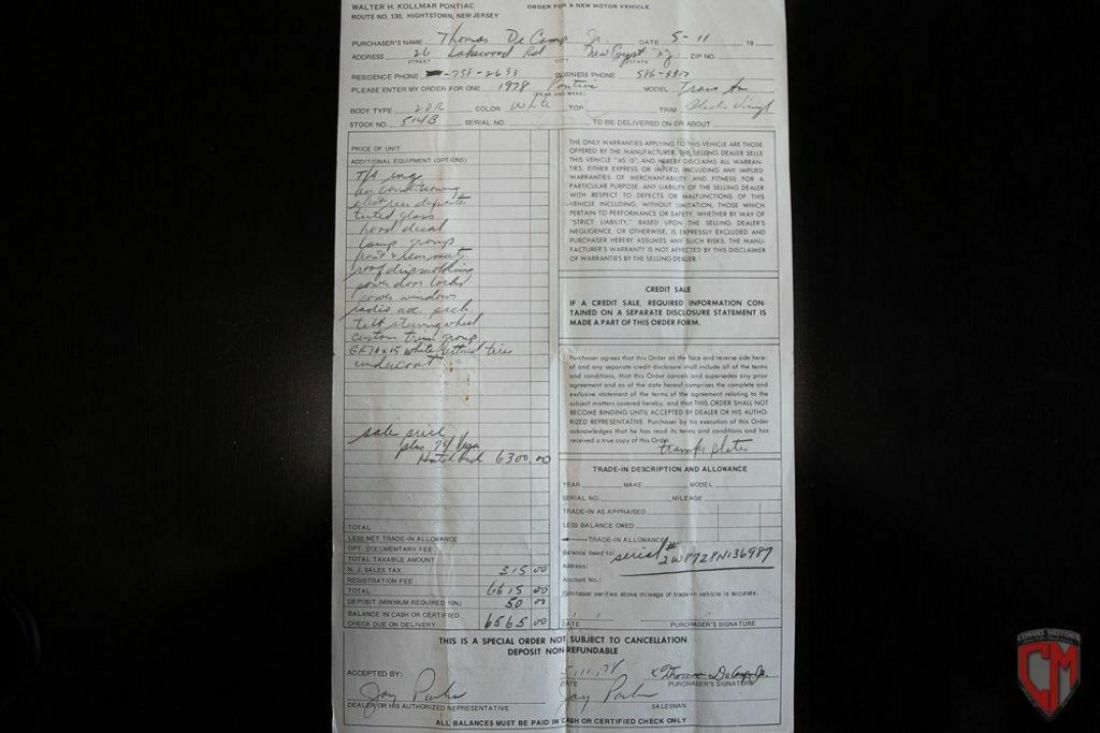 WALTER H. KOLLMAR PONTIAC ORDER FOR A NEW MOTOR VEHICLE
ROUTE NO. 130, HIGHTSTOWN, NEW JERSEY
PURCHASER'S NAME Thomas De Camp Jr. DATE 5-11 19
ADDRESS 26 Lakewood Rd New Egypt NJ ZIP NO.
STREET CITY STATE
RESIDENCE PHONE -758-2693 BUSINESS PHONE 586-
PLEASE ENTER MY ORDER FOR ONE 1978 Pontiac MODEL Trans Am
(YEAR AND MAKE)
BODY TYPE 2DR COLOR White TOP TRIM Black Vinyl
STOCK NO. 514B SERIAL NO. TO BE DELIVERED ON OR ABOUT
PRICE OF UNIT
ADDITIONAL EQUIPMENT (OPTIONS)
T/A eng
air conditioning
elect rear defroster
tinted glass
hood decal
lamp group
front & rear mat
roof drip molding
power door locks
power windows
radio acc pack
tilt steering wheel
custom trim group
GR70x15 white lettered tires
undercoat
sale price
plus 74 Vega
Hatchback 6300.00
TOTAL
LESS NET TRADE-IN ALLOWANCE
OPT. DOCUMENTARY FEE
TOTAL TAXABLE AMOUNT
N. J. SALES TAX 315 00
REGISTRATION FEE
TOTAL 6615 00
DEPOSIT (MINIMUM REQUIRED 10%) 50 00
BALANCE IN CASH OR CERTIFIED
CHECK DUE ON DELIVERY 6565 00
THE ONLY WARRANTIES APPLYING TO THIS VEHICLE ARE THOSE
OFFERED BY THE MANUFACTURER. THE SELLING DEALER SELLS
THIS VEHICLE "AS IS", AND HEREBY DISCLAIMS ALL WARRAN-
TIES, EITHER EXPRESS OR IMPLIED, INCLUDING ANY IMPLIED
WARRANTIES OF MERCHANTABILITY AND FITNESS FOR A
PARTICULAR PURPOSE. ANY LIABILITY OF THE SELLING DEALER
WITH RESPECT TO DEFECTS OR MALFUNCTIONS OF THIS
VEHICLE INCLUDING, WITHOUT LIMITATION, THOSE WHICH
PERTAIN TO PERFORMANCE OR SAFETY, WHETHER BY WAY OF
"STRICT LIABILITY," BASED UPON THE SELLING DEALER'S
NEGLIGENCE, OR OTHERWISE, IS EXPRESSLY EXCLUDED AND
PURCHASER HEREBY ASSUMES ANY SUCH RISKS. THE MANU-
FACTURER'S WARRANTY IS NOT AFFECTED BY THIS DISCLAIMER
OF WARRANTIES BY THE SELLING DEALER.
CREDIT SALE
IF A CREDIT SALE, REQUIRED INFORMATION CON-
TAINED ON A SEPARATE DISCLOSURE STATEMENT IS
MADE A PART OF THIS ORDER FORM.
Purchaser agrees that this Order on the face and reverse side here-
of and any separate credit disclosure shall include all of the terms
and conditions, that this Order cancels and supersedes any prior
agreement and as of the date hereof comprises the complete and
exclusive statement of the terms of the agreement relating to the
subject matters covered hereby, and that THIS ORDER SHALL NOT
BECOME BINDING UNTIL ACCEPTED BY DEALER OR HIS AUTHO-
RIZED REPRESENTATIVE. Purchaser by his execution of this Order
acknowledges that he has read its terms and conditions and has
received a true copy of this Order.
transfer plates
TRADE-IN DESCRIPTION AND ALLOWANCE
YEAR MAKE MODEL
SERIAL NO. MILEAGE
TRADE-IN AS APPRAISED
LESS BALANCE OWED
TRADE-IN ALLOWANCE
Balance owed to: serial #
2W87Z8N136987
Address:
Account No.:
Purchaser verifies above mileage of trade-in vehicle is accurate.
DATE PURCHASER'S SIGNATURE
THIS IS A SPECIAL ORDER NOT SUBJECT TO CANCELLATION
DEPOSIT NON-REFUNDABLE
ACCEPTED BY: 5/11/78 Thomas DeCamp Jr.
DATE PURCHASER'S SIGNATURE
Jay Parker Jay Parker
DEALER OR HIS AUTHORIZED REPRESENTATIVE SALESMAN
ALL BALANCES MUST BE PAID IN CASH OR CERTIFIED CHECK ONLY
COSMO MOTORS
CM